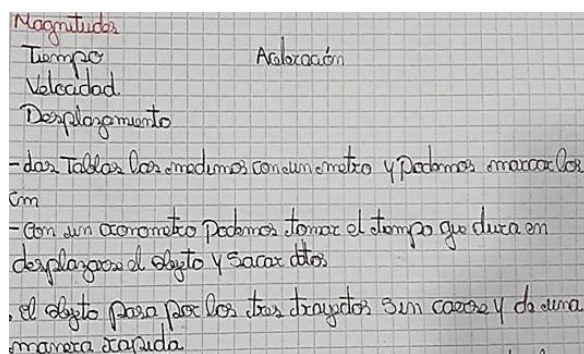 Magnitudes
Tiempo Aceleración
Velocidad.
Desplazamiento
- das Tablas las medimos con un metro y Podemos marcar los
cm
- Con un cronometro Podemos tomar el tiempo que dura en
desplazarse el objeto y Sacar datos
. el objeto pasa por los tres trayectos Sin caerse y de una
manera rapida